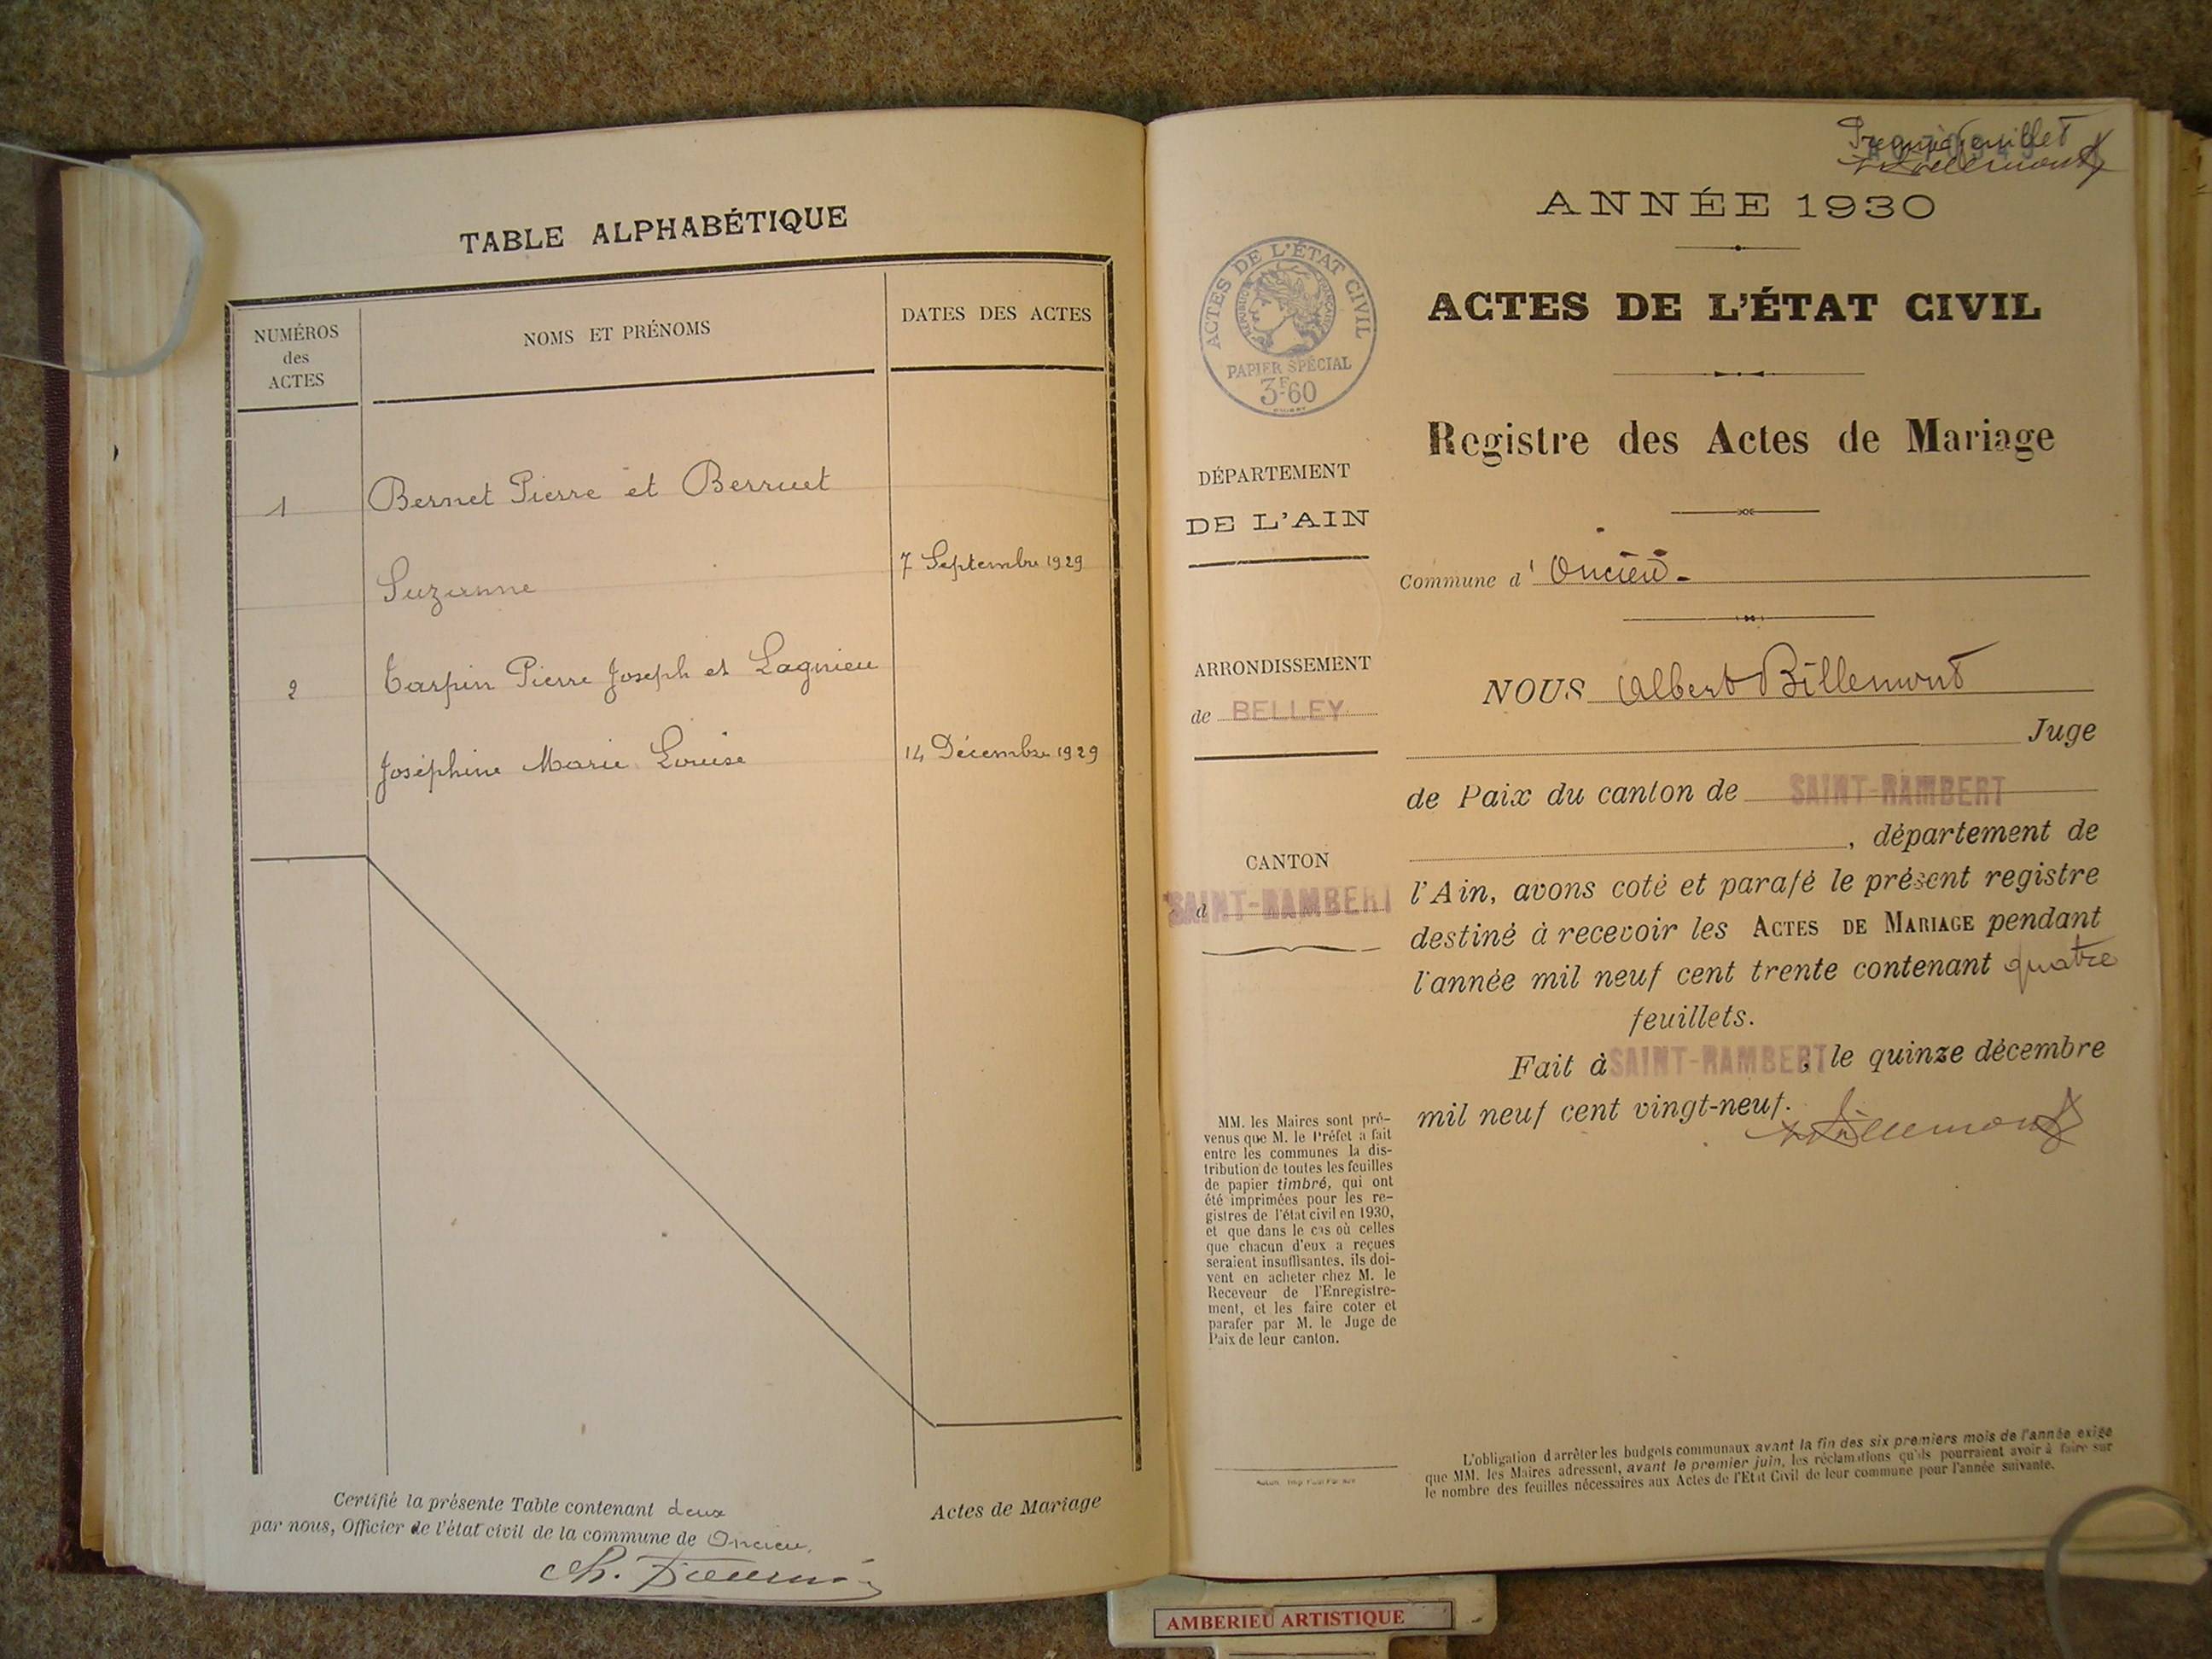 TABLE ALPHABÉTIQUE
NUMÉROS
des
ACTES
NOMS ET PRÉNOMS
DATES DES ACTES
1
Bernet Pierre et Berruet
Suzanne
7 Septembre 1929
2
Tarpin Pierre Joseph et Lagnieu
Joséphine Marie Louise
14 Décembre 1929
Certifié la présente Table contenant deux
Actes de Mariage
par nous, Officier de l'état civil de la commune de Oncieu.
Premier feuillet
Billemont
ANNÉE 1930
ACTES DE L'ÉTAT CIVIL
RÉPUBLIQUE FRANÇAISE
PAPIER SPÉCIAL
3F60
ACTES DE L'ÉTAT CIVIL
Registre des Actes de Mariage
DÉPARTEMENT
DE L'AIN
Commune d'Oncieu.
ARRONDISSEMENT
de BELLEY
NOUS Albert Billemont
Juge
de Paix du canton de SAINT-RAMBERT
, département de
CANTON
d SAINT-RAMBERT
l'Ain, avons coté et parafé le présent registre
destiné à recevoir les ACTES DE MARIAGE pendant
l'année mil neuf cent trente contenant quatre
feuillets.
Fait à SAINT-RAMBERT, le quinze décembre
mil neuf cent vingt-neuf.
Billemont
MM. les Maires sont pré-
venus que M. le Préfet a fait
entre les communes la dis-
tribution de toutes les feuilles
de papier timbré, qui ont
été imprimées pour les re-
gistres de l'état civil en 1930,
et que dans le cas où celles
que chacun d'eux a reçues
seraient insuffisantes, ils doi-
vent en acheter chez M. le
Receveur de l'Enregistre-
ment, et les faire coter et
parafer par M. le Juge de
Paix de leur canton.
L'obligation d'arrêter les budgets communaux avant la fin des six premiers mois de l'année exige
que MM. les Maires adressent, avant le premier juin, les réclamations qu'ils pourraient avoir à faire sur
le nombre des feuilles nécessaires aux Actes de l'Etat Civil de leur commune pour l'année suivante.
AMBERIEU ARTISTIQUE